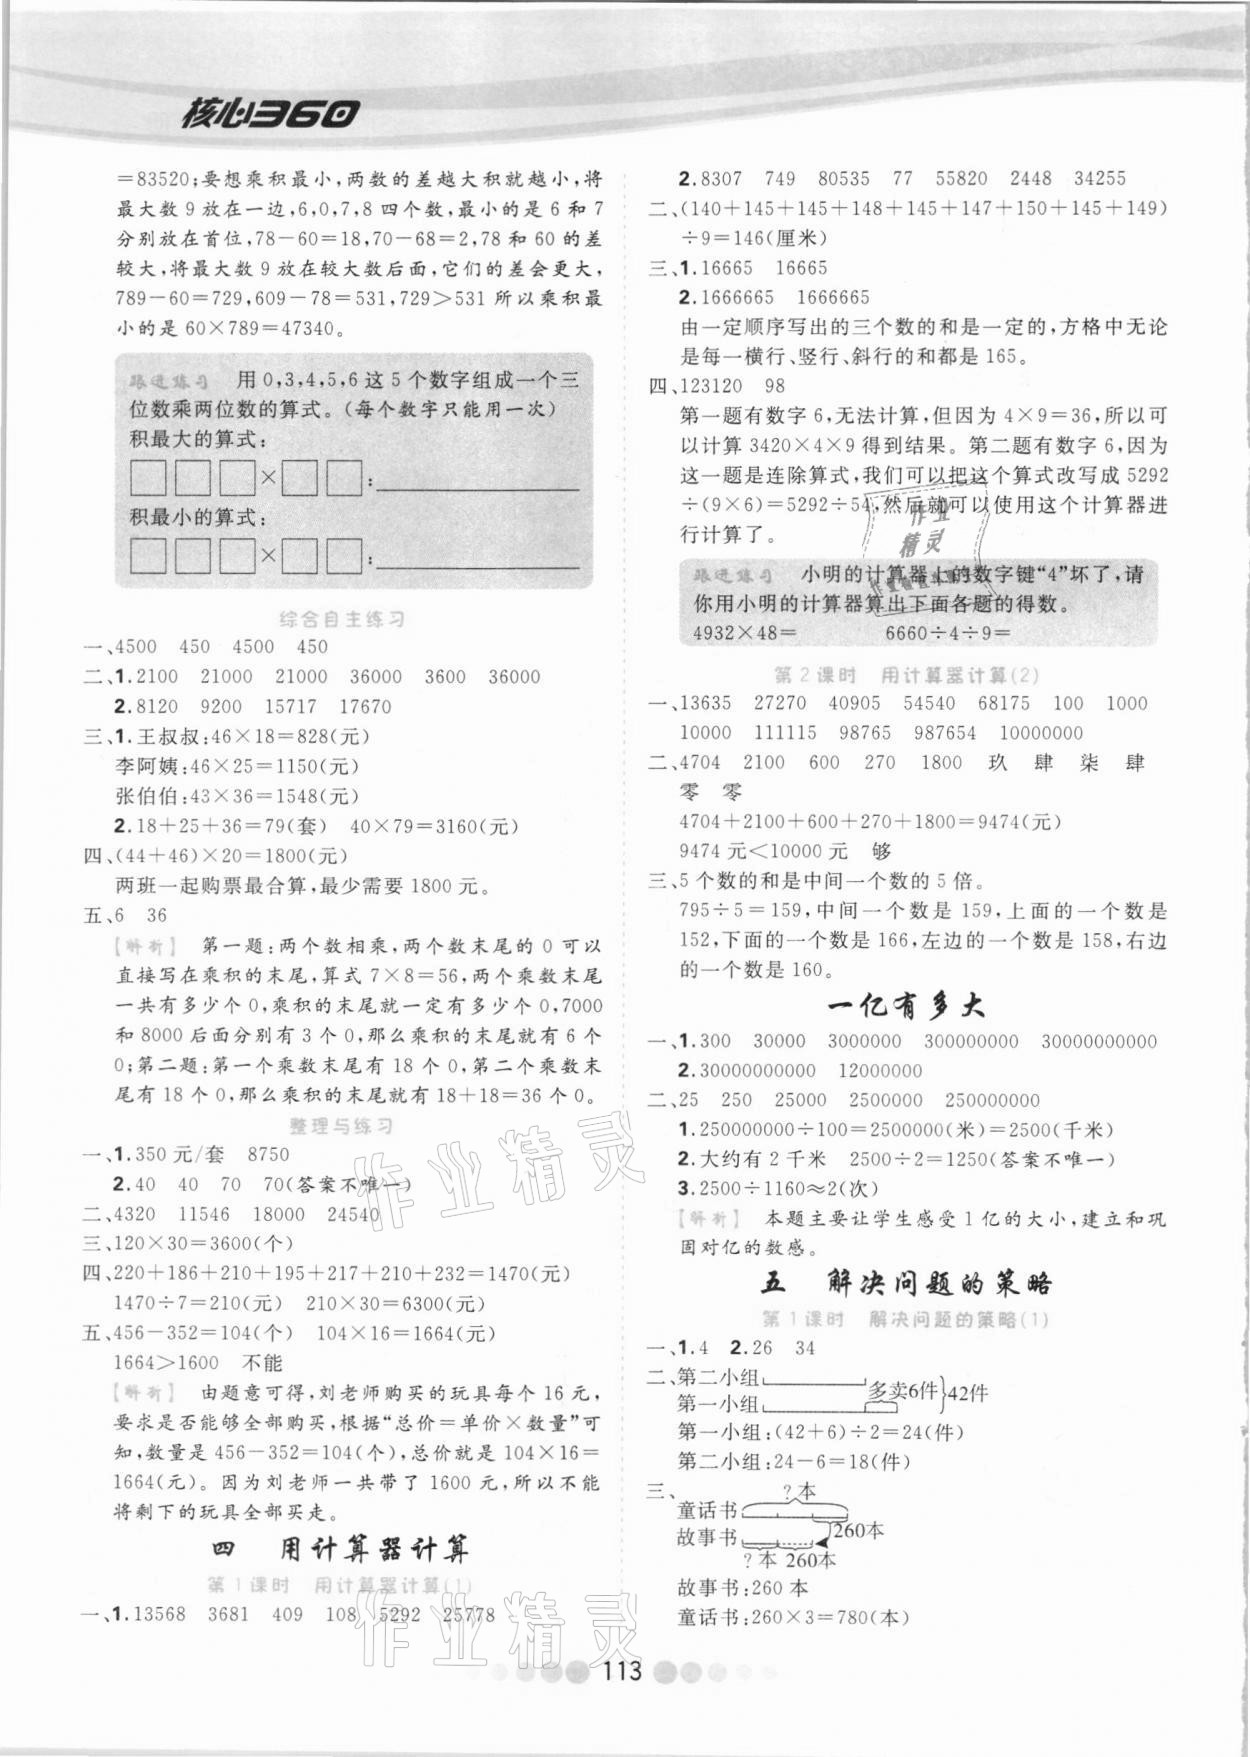 核心360
=83520;要想乘积最小,两数的差越大积就越小,将
最大数 9 放在一边,6,0,7,8 四个数,最小的是 6 和 7
分别放在首位,78－60=18,70－68=2,78 和 60 的差
较大,将最大数 9 放在较大数后面,它们的差会更大,
789－60=729,609－78=531,729>531 所以乘积最
小的是 60×789=47340。
跟进练习 用 0,3,4,5,6 这 5 个数字组成一个三
位数乘两位数的算式。(每个数字只能用一次)
积最大的算式:
□□□×□□:
积最小的算式:
□□□×□□:
综合自主练习
一、4500 450 4500 450
二、1.2100 21000 21000 36000 3600 36000
2.8120 9200 15717 17670
三、1.王叔叔:46×18=828(元)
李阿姨:46×25=1150(元)
张伯伯:43×36=1548(元)
2.18+25+36=79(套) 40×79=3160(元)
四、(44+46)×20=1800(元)
两班一起购票最合算,最少需要 1800 元。
五、6 36
【解析】 第一题:两个数相乘,两个数末尾的 0 可以
直接写在乘积的末尾,算式 7×8=56,两个乘数末尾
一共有多少个 0,乘积的末尾就一定有多少个 0,7000
和 8000 后面分别有 3 个 0,那么乘积的末尾就有 6 个
0;第二题:第一个乘数末尾有 18 个 0,第二个乘数末
尾有 18 个 0,那么乘积的末尾就有 18+18=36 个 0。
整理与练习
一、1.350 元/套 8750
2.40 40 70 70(答案不唯一)
二、4320 11546 18000 24540
三、120×30=3600(个)
四、220+186+210+195+217+210+232=1470(元)
1470÷7=210(元) 210×30=6300(元)
五、456－352=104(个) 104×16=1664(元)
1664>1600 不能
【解析】 由题意可得,刘老师购买的玩具每个 16 元,
要求是否能够全部购买,根据“总价=单价×数量”可
知,数量是 456－352=104(个),总价就是 104×16=
1664(元)。因为刘老师一共带了 1600 元,所以不能
将剩下的玩具全部买走。
四 用计算器计算
第 1 课时 用计算器计算(1)
一、1.13568 3681 409 108 5292 25778
2.8307 749 80535 77 55820 2448 34255
二、(140+145+145+148+145+147+150+145+149)
÷9=146(厘米)
三、1.16665 16665
2.1666665 1666665
由一定顺序写出的三个数的和是一定的,方格中无论
是每一横行、竖行、斜行的和都是 165。
四、123120 98
第一题有数字 6,无法计算,但因为 4×9=36,所以可
以计算 3420×4×9 得到结果。第二题有数字 6,因为
这一题是连除算式,我们可以把这个算式改写成 5292
÷(9×6)=5292÷54,然后就可以使用这个计算器进
行计算了。
跟进练习 小明的计算器上的数字键“4”坏了,请
你用小明的计算器算出下面各题的得数。
4932×48= 6660÷4÷9=
第 2 课时 用计算器计算(2)
一、13635 27270 40905 54540 68175 100 1000
10000 111115 98765 987654 10000000
二、4704 2100 600 270 1800 玖 肆 柒 肆
零 零
4704+2100+600+270+1800=9474(元)
9474 元<10000 元 够
三、5 个数的和是中间一个数的 5 倍。
795÷5=159,中间一个数是 159,上面的一个数是
152,下面的一个数是 166,左边的一个数是 158,右边
的一个数是 160。
一亿有多大
一、1.300 30000 3000000 300000000 30000000000
2.30000000000 12000000
二、25 250 25000 2500000 250000000
1.250000000÷100=2500000(米)=2500(千米)
2.大约有 2 千米 2500÷2=1250(答案不唯一)
3.2500÷1160≈2(次)
【解析】 本题主要让学生感受 1 亿的大小,建立和巩
固对亿的数感。
五 解决问题的策略
第 1 课时 解决问题的策略(1)
一、1.4 2.26 34
二、第二小组
多卖6件 42件
第一小组
第一小组:(42+6)÷2=24(件)
第二小组:24－6=18(件)
三、
?本
童话书
260本
故事书
?本 260本
故事书:260 本
童话书:260×3=780(本)
113
作业精灵
作业精灵
作业
精灵